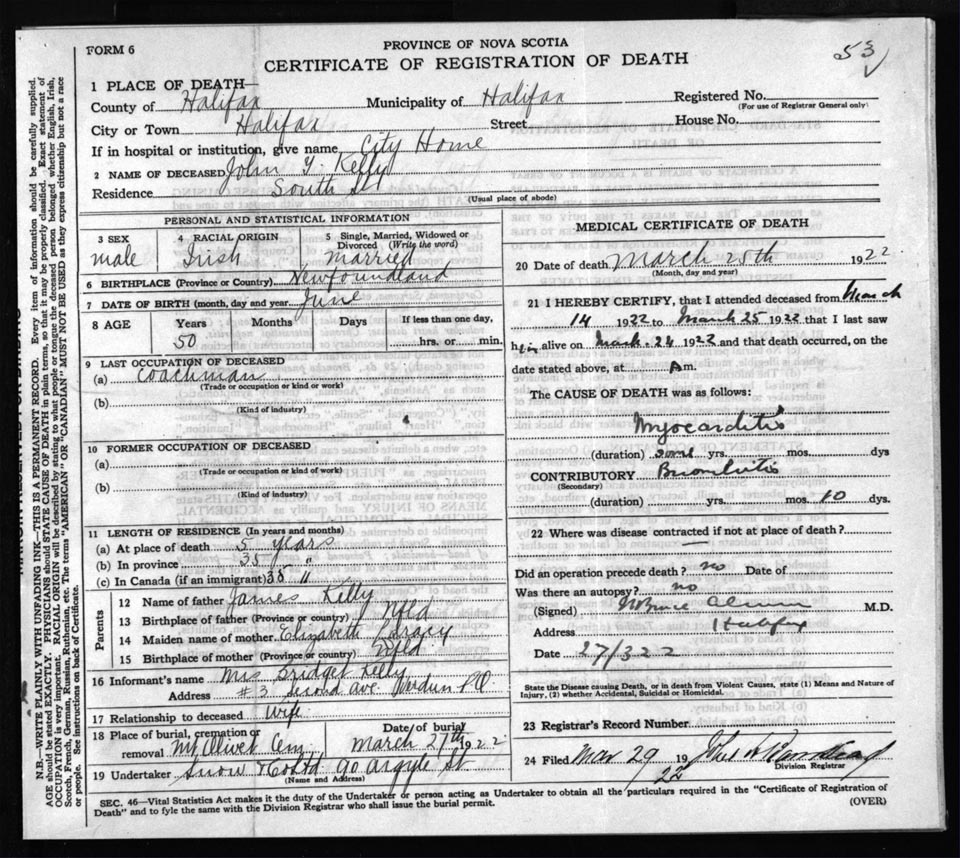 FORM 6
PROVINCE OF NOVA SCOTIA
CERTIFICATE OF REGISTRATION OF DEATH
53
1 PLACE OF DEATH
County of Halifax Municipality of Halifax Registered No.
(For use of Registrar General only)
City or Town Halifax Street House No.
If in hospital or institution, give name City Home
2 NAME OF DECEASED John Y. Kelly
Residence South St
(Usual place of abode)
PERSONAL AND STATISTICAL INFORMATION
3 SEX male
4 RACIAL ORIGIN Irish
5 Single, Married, Widowed or Divorced (Write the word) Married
6 BIRTHPLACE (Province or Country) Newfoundland
7 DATE OF BIRTH (month, day and year) June
8 AGE Years 50 Months Days If less than one day, hrs. or min.
9 LAST OCCUPATION OF DECEASED
(a) Coachman
(Trade or occupation or kind or work)
(b)
(Kind of industry)
10 FORMER OCCUPATION OF DECEASED
(a)
(Trade or occupation or kind or work)
(b)
(Kind of industry)
11 LENGTH OF RESIDENCE (In years and months)
(a) At place of death 5 years
(b) In province 35 "
(c) In Canada (if an immigrant) 35 "
Parents
12 Name of father James Kelly
13 Birthplace of father (Province or country) Nfld
14 Maiden name of mother Elizabeth
15 Birthplace of mother (Province or country) Nfld
16 Informant's name Mrs Bridget Kelly
Address #3 Second Ave. Verdun PQ
17 Relationship to deceased Wife
18 Place of burial, cremation or removal Mt Olivet Cem. Date of burial March 27th 1922
19 Undertaker Snow & Co Ltd 90 Argyle St
(Name and Address)
MEDICAL CERTIFICATE OF DEATH
20 Date of death March 25th 1922
(Month, day and year)
21 I HEREBY CERTIFY, that I attended deceased from March
14 1922 to March 25 1922 that I last saw
him alive on March 24 1922 and that death occurred, on the
date stated above, at A m.
The CAUSE OF DEATH was as follows:
Myocarditis
(duration) some yrs. mos. dys
CONTRIBUTORY Bronchitis
(Secondary)
(duration) yrs. mos. 10 dys.
22 Where was disease contracted if not at place of death?
Did an operation precede death? no Date of
Was there an autopsy? no
(Signed) M.D.
Address Halifax
Date 27/3 22
State the Disease causing Death, or in death from Violent Causes, state (1) Means and Nature of
Injury, (2) whether Accidental, Suicidal or Homicidal.
23 Registrar's Record Number
24 Filed Mar 29 19 22
Division Registrar
SEC. 46—Vital Statistics Act makes it the duty of the Undertaker or person acting as Undertaker to obtain all the particulars required in the "Certificate of Registration of
Death" and to fyle the same with the Division Registrar who shall issue the burial permit.
(OVER)
N.B.—WRITE PLAINLY WITH UNFADING INK—THIS IS A PERMANENT RECORD. Every item of information should be carefully supplied.
AGE should be stated EXACTLY. PHYSICIANS should STATE CAUSE OF DEATH in plain terms, so that it may be properly classified. Exact statement of
OCCUPATION is very important. RACIAL ORIGIN will be described by stating to what people or tongue the deceased person belonged whether English, Irish,
Scotch, French, German, Russian, Ruthenian, etc. The terms "AMERICAN" OR "CANADIAN" MUST NOT BE USED as they express citizenship but not a race
or people. See instructions on back of Certificate.